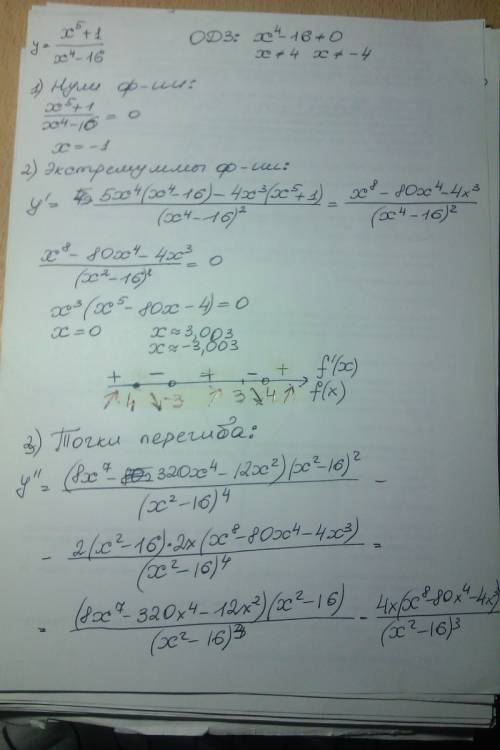 y = (x⁵+1)/(x⁴-16) ОДЗ: x⁴-16≠0
x≠4 x≠-4
1) Нули ф-ии:
(x⁵+1)/(x⁴-16) = 0
x = -1
2) Экстремуммы ф-ии:
y' = (5x⁴(x⁴-16) - 4x³(x⁵+1))/(x⁴-16)² = (x⁸-80x⁴-4x³)/(x⁴-16)²
(x⁸-80x⁴-4x³)/(x²-16)² = 0
x³(x⁵-80x-4) = 0
x=0 x≈3,003
x≈-3,003
+ - + - + f'(x)
↗ -4 ↘ -3 ↗ 3 ↘ 4 ↗ f(x)
3) Точки перегиба:
y'' = ((8x⁷-320x⁴-12x²)(x²-16)²)/(x²-16)⁴ -
- (2(x²-16)·2x(x⁸-80x⁴-4x³))/(x²-16)⁴ =
= ((8x⁷-320x⁴-12x²)(x²-16))/(x²-16)³ - (4x(x⁸-80x⁴-4x³))/(x²-16)³